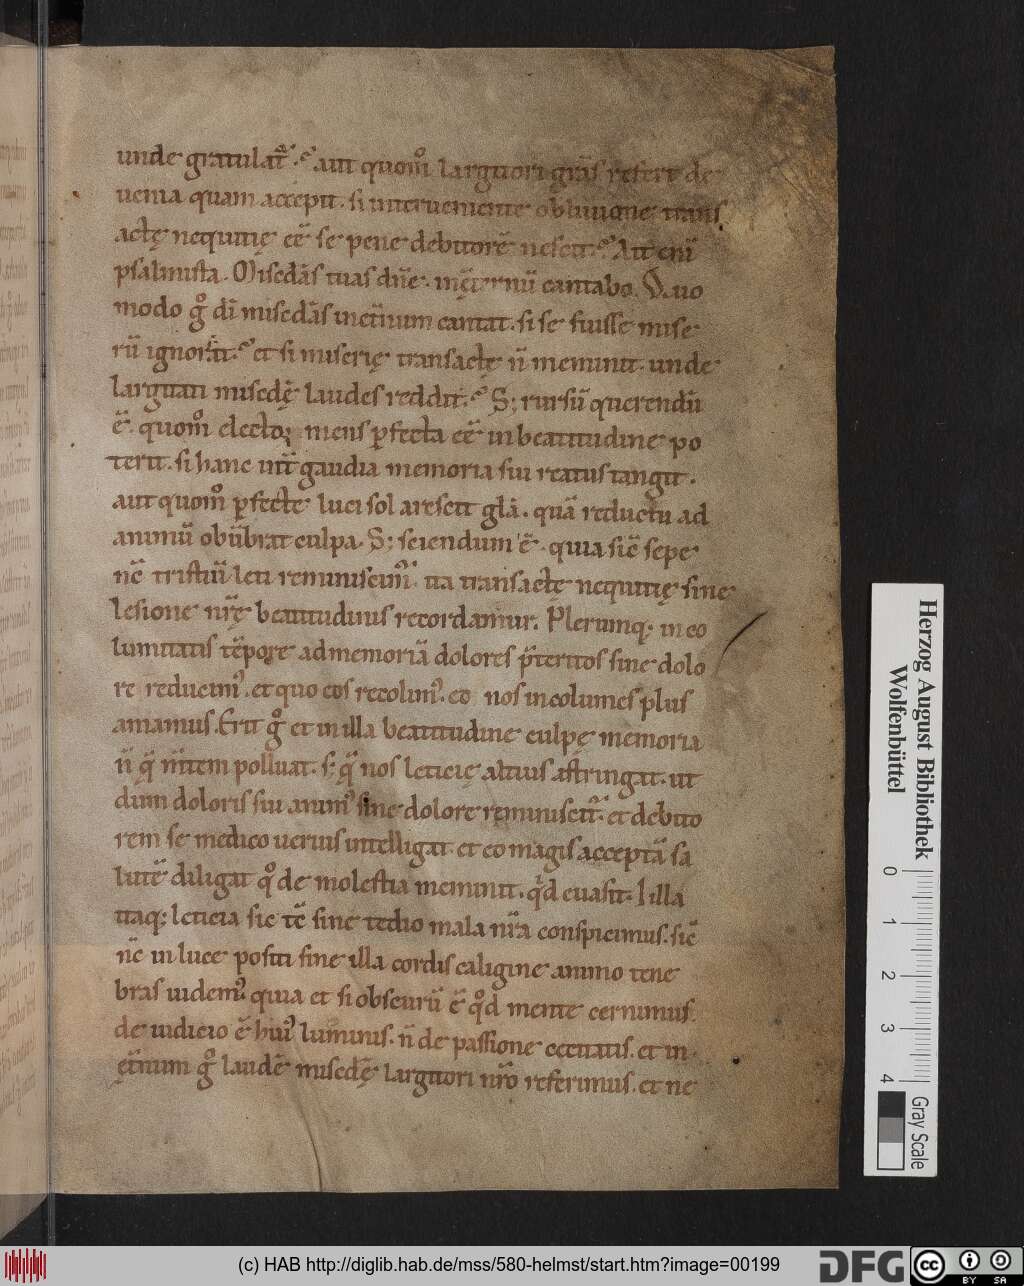 unde gratulat᷑. aut quom̊ largitori grãs refert de
uenia quam accepit. si interueniente obliuione trans
actę nequitię eẽ se pene debitorẽ nescit. Ait enĩ
psalmista. Misedãs tuas dñe. inęternũ cantabo. Quo
modo g̊ dĩ misedãs inet̃num cantat. si se fuisse mise
rũ ignorat. et si miserię transactę ñ meminit. unde
largitati misedę̃ laudes reddit. S; rursũ querendũ
ẽ. quom̊ electoꝝ mens ꝑfecta eẽ in beatitudine po
terit. si hanc int̃ gaudia memoria sui reatus tangit.
aut quom̊ ꝑfecte luci sol arescit glã. quã reductu ad
animũ obũbrat culpa. S; sciendum ẽ. quia sic̃ sepe
nc̃ tristiũ leti reminiscim᷒. ita transactę nequitię sine
lesione nr̃ę beatitudinis recordamur. Plerunq; inco
lumitatis tẽpore ad memoriã dolores p̃teritos sine dolo
re reducim᷒. et quo eos recolim᷒. eo nos incolumes plus
amamus. Erit g̊ et in illa beatitudine culpę memoria
ñ q̃ m̃tem polluat. s; q̃ nos leticię altius astringat. ut
dum doloris sui anim᷒ sine dolore reminiscit᷑. et debito
rem se medico uerius intelligat. et eo magis acceptã sa
lutẽ diligat q̊ de molestia meminit. qd̊ euasit. Iilla
itaq; leticia sic tẽ sine tedio mala nr̃a conspicimus. sic̃
nc̃ in luce positi sine illa cordis caligine animo tene
bras uidem᷒. quia et si obscurũ ẽ qd̊ mente cernimus.
de iudicio ẽ hui᷒ luminis. ñ de passione cecitatis. et in
ęt̃num g̊ laudẽ misedę̃ largitori nr̃o referimus. et ne
Herzog August Bibliothek
Wolfenbüttel
0 1 2 3 4
Gray Scale
(c) HAB http://diglib.hab.de/mss/580-helmst/start.htm?image=00199
DFG
cc BY SA